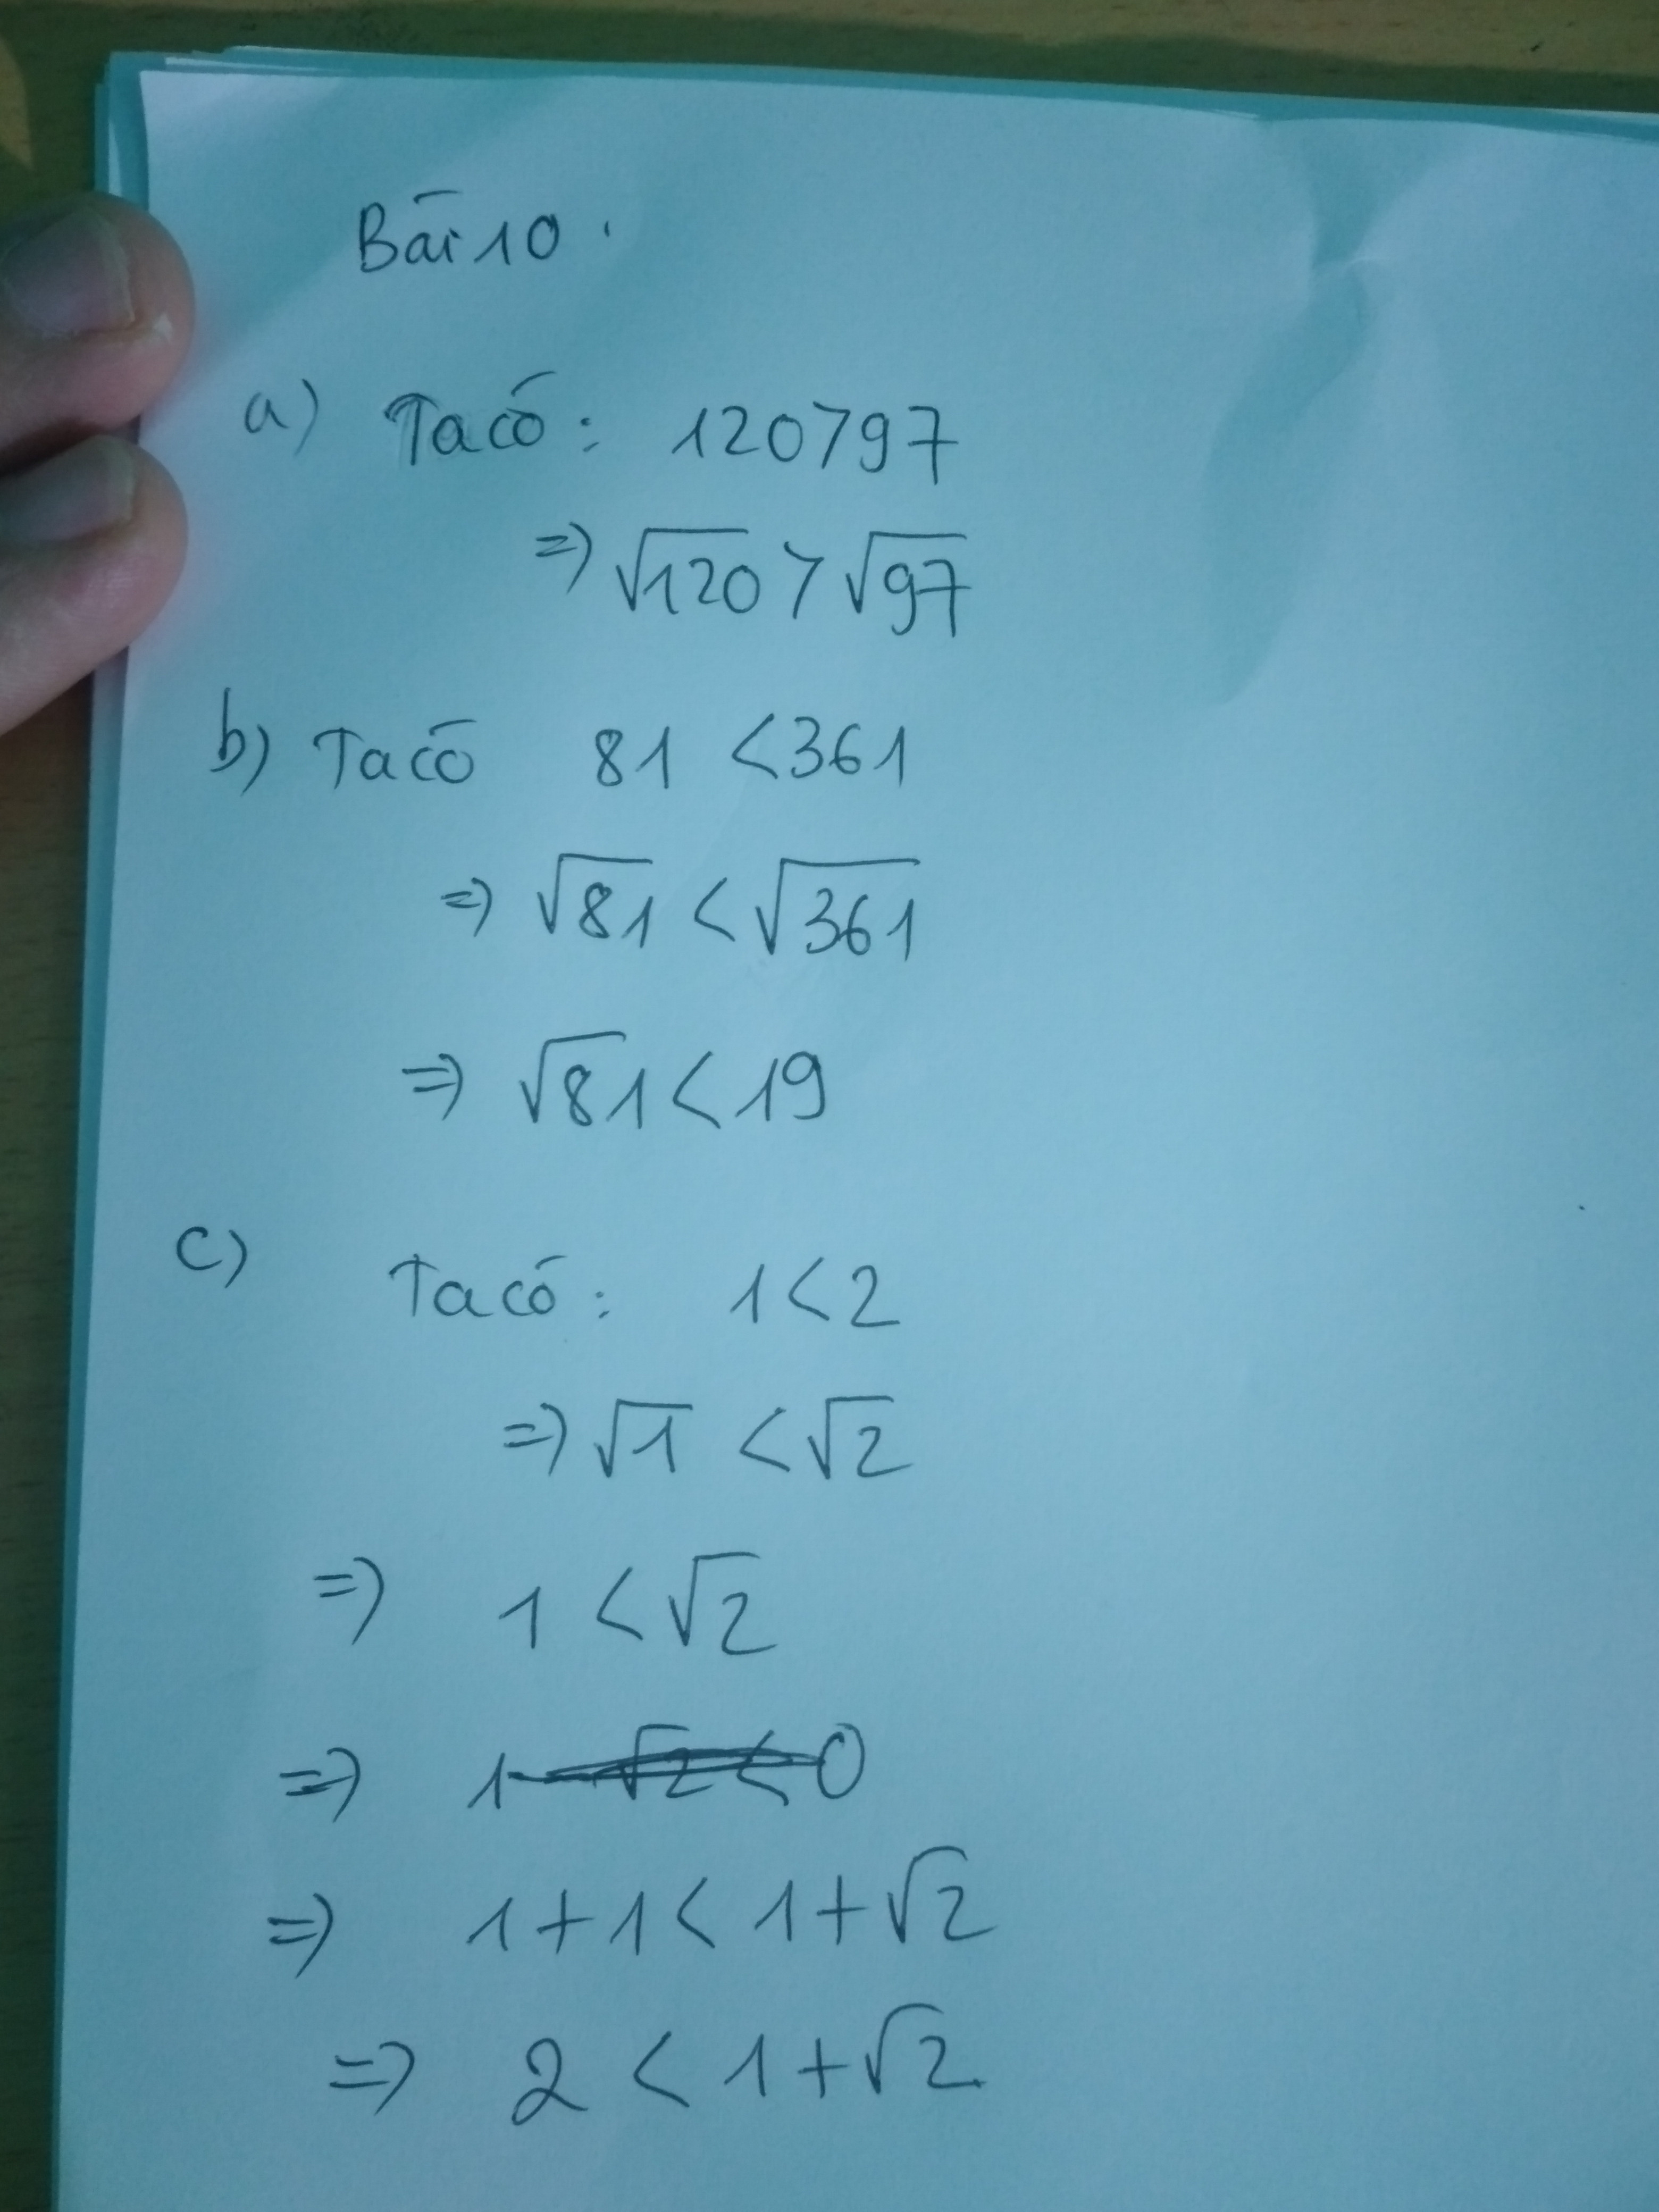 Bài 10.
a) Ta có: 120 > 97
=> √120 > √97
b) Ta có 81 < 361
=> √81 < √361
=> √81 < 19
c) Ta có: 1 < 2
=> √1 < √2
=> 1 < √2
=> 1 - √2 < 0
=> 1 + 1 < 1 + √2
=> 2 < 1 + √2